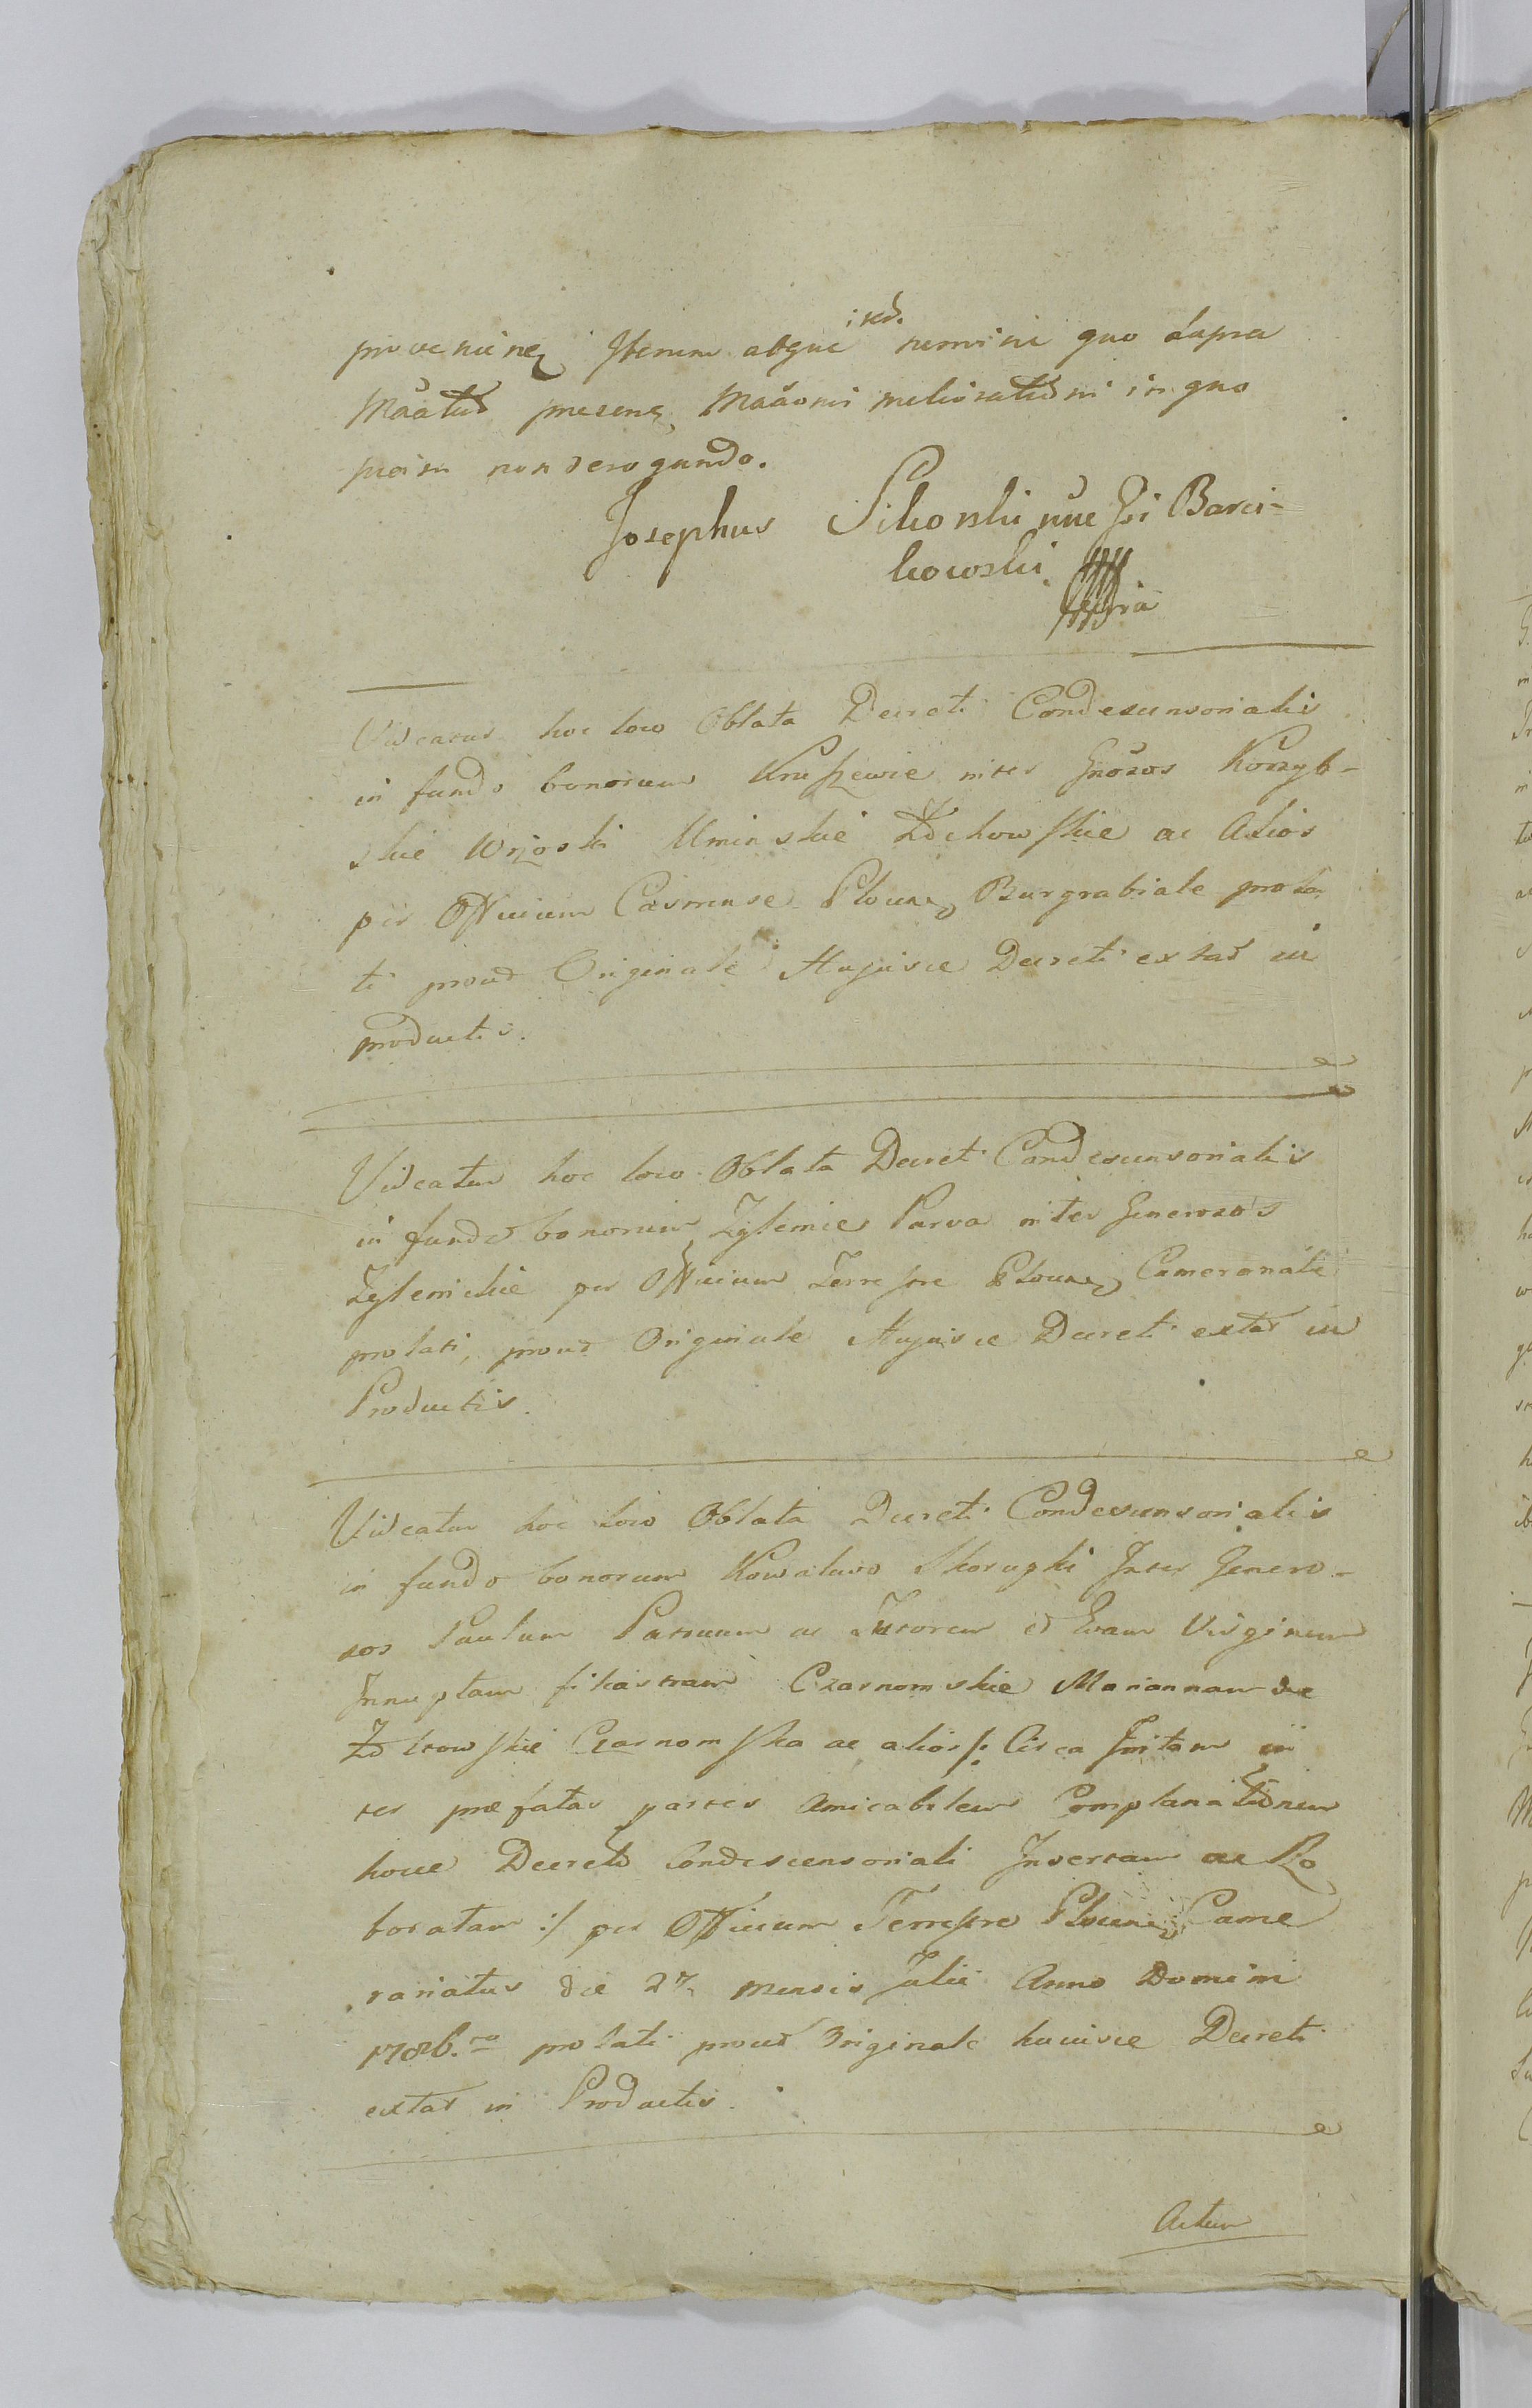 provenienē Iterum absque nemini quo supra
Mããtus presenē, Mããoni meliorationi in quo
puin non derogando.
Josephus Sikorski nõe Gsi Barci-
kowski
Videatur hoc loco Oblata Decreti Condescensorialis
in fundo bonorum Kruszewie inter Gnõsos Korzyb-
skie Wrzoski Uminskie Zdchowskie ac Alios
per Officium Castrense Plocenē Burgrabiale prola-
ti prout Originale Hujusce Decreti extat in
productis.
Videatur hoc loco Oblata Decreti Condescensorialis
in fundo bonorum Zglenice Parva inter Generosos
Zglenickie per Officium Terrestre Plocenē Camerariale
prolati, prout Originale Hujusce Decreti extat in
Productis.
Videatur hoc loco Oblata Decreti Condescensorialis
in fundo bonorum Kowalewo Skorupki Inter Genero-
sos Paulum Patruum ac Tutorem et Evam Virginem
Innuptam filiastram Czarnomskie Mariannam de
Czarnomska ac alios /: Circa Initam in
ter præfatas partes Amicabilem Complanationem
hocce Decreto Condescensoriali Insertam ac Ro
boratam :/ per Officium Terrestre Plocenē Came
rariatus die 27 mensis Julii Anno Domini
1786.to prolati prout Originale hujusce Decreti
extat in Productis.
Actum